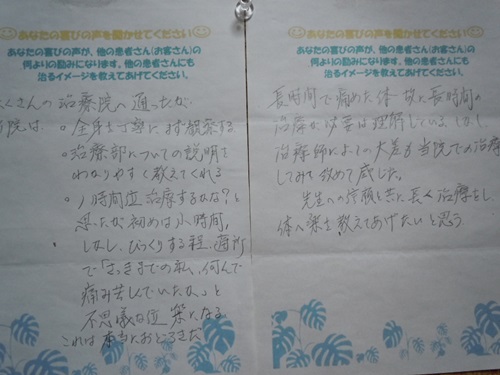 あなたの喜びの声を聞かせてください
あなたの喜びの声が、他の患者さん(お客さん)の
何よりの励みになります。他の患者さんにも
治るイメージを教えてあげてください。
くさんの治療院へ通ったが
院は ○全身を丁寧にまず観察する
○治療部についての説明を
わかりやすく教えてくれる
○1時間位治療するかな?と
思ったが初めは小時間、
しかし、びっくりする程、適所
で「さっきまでの私、何んで
痛み苦しんでいたか」と
不思議な位 楽になる
これは本当におどろきだ
あなたの喜びの声を聞かせてください
あなたの喜びの声が、他の患者さん(お客さん)の
何よりの励みになります。他の患者さんにも
治るイメージを教えてあげてください。
長時間で痛めた体 故に長時間の
治療が必要は理解している。しかし
治療師によっての大差を当院での治療
してみて改めて感じた。
先生への信頼と共に長く治療をし、
体へ楽を教えてあげたいと思う。